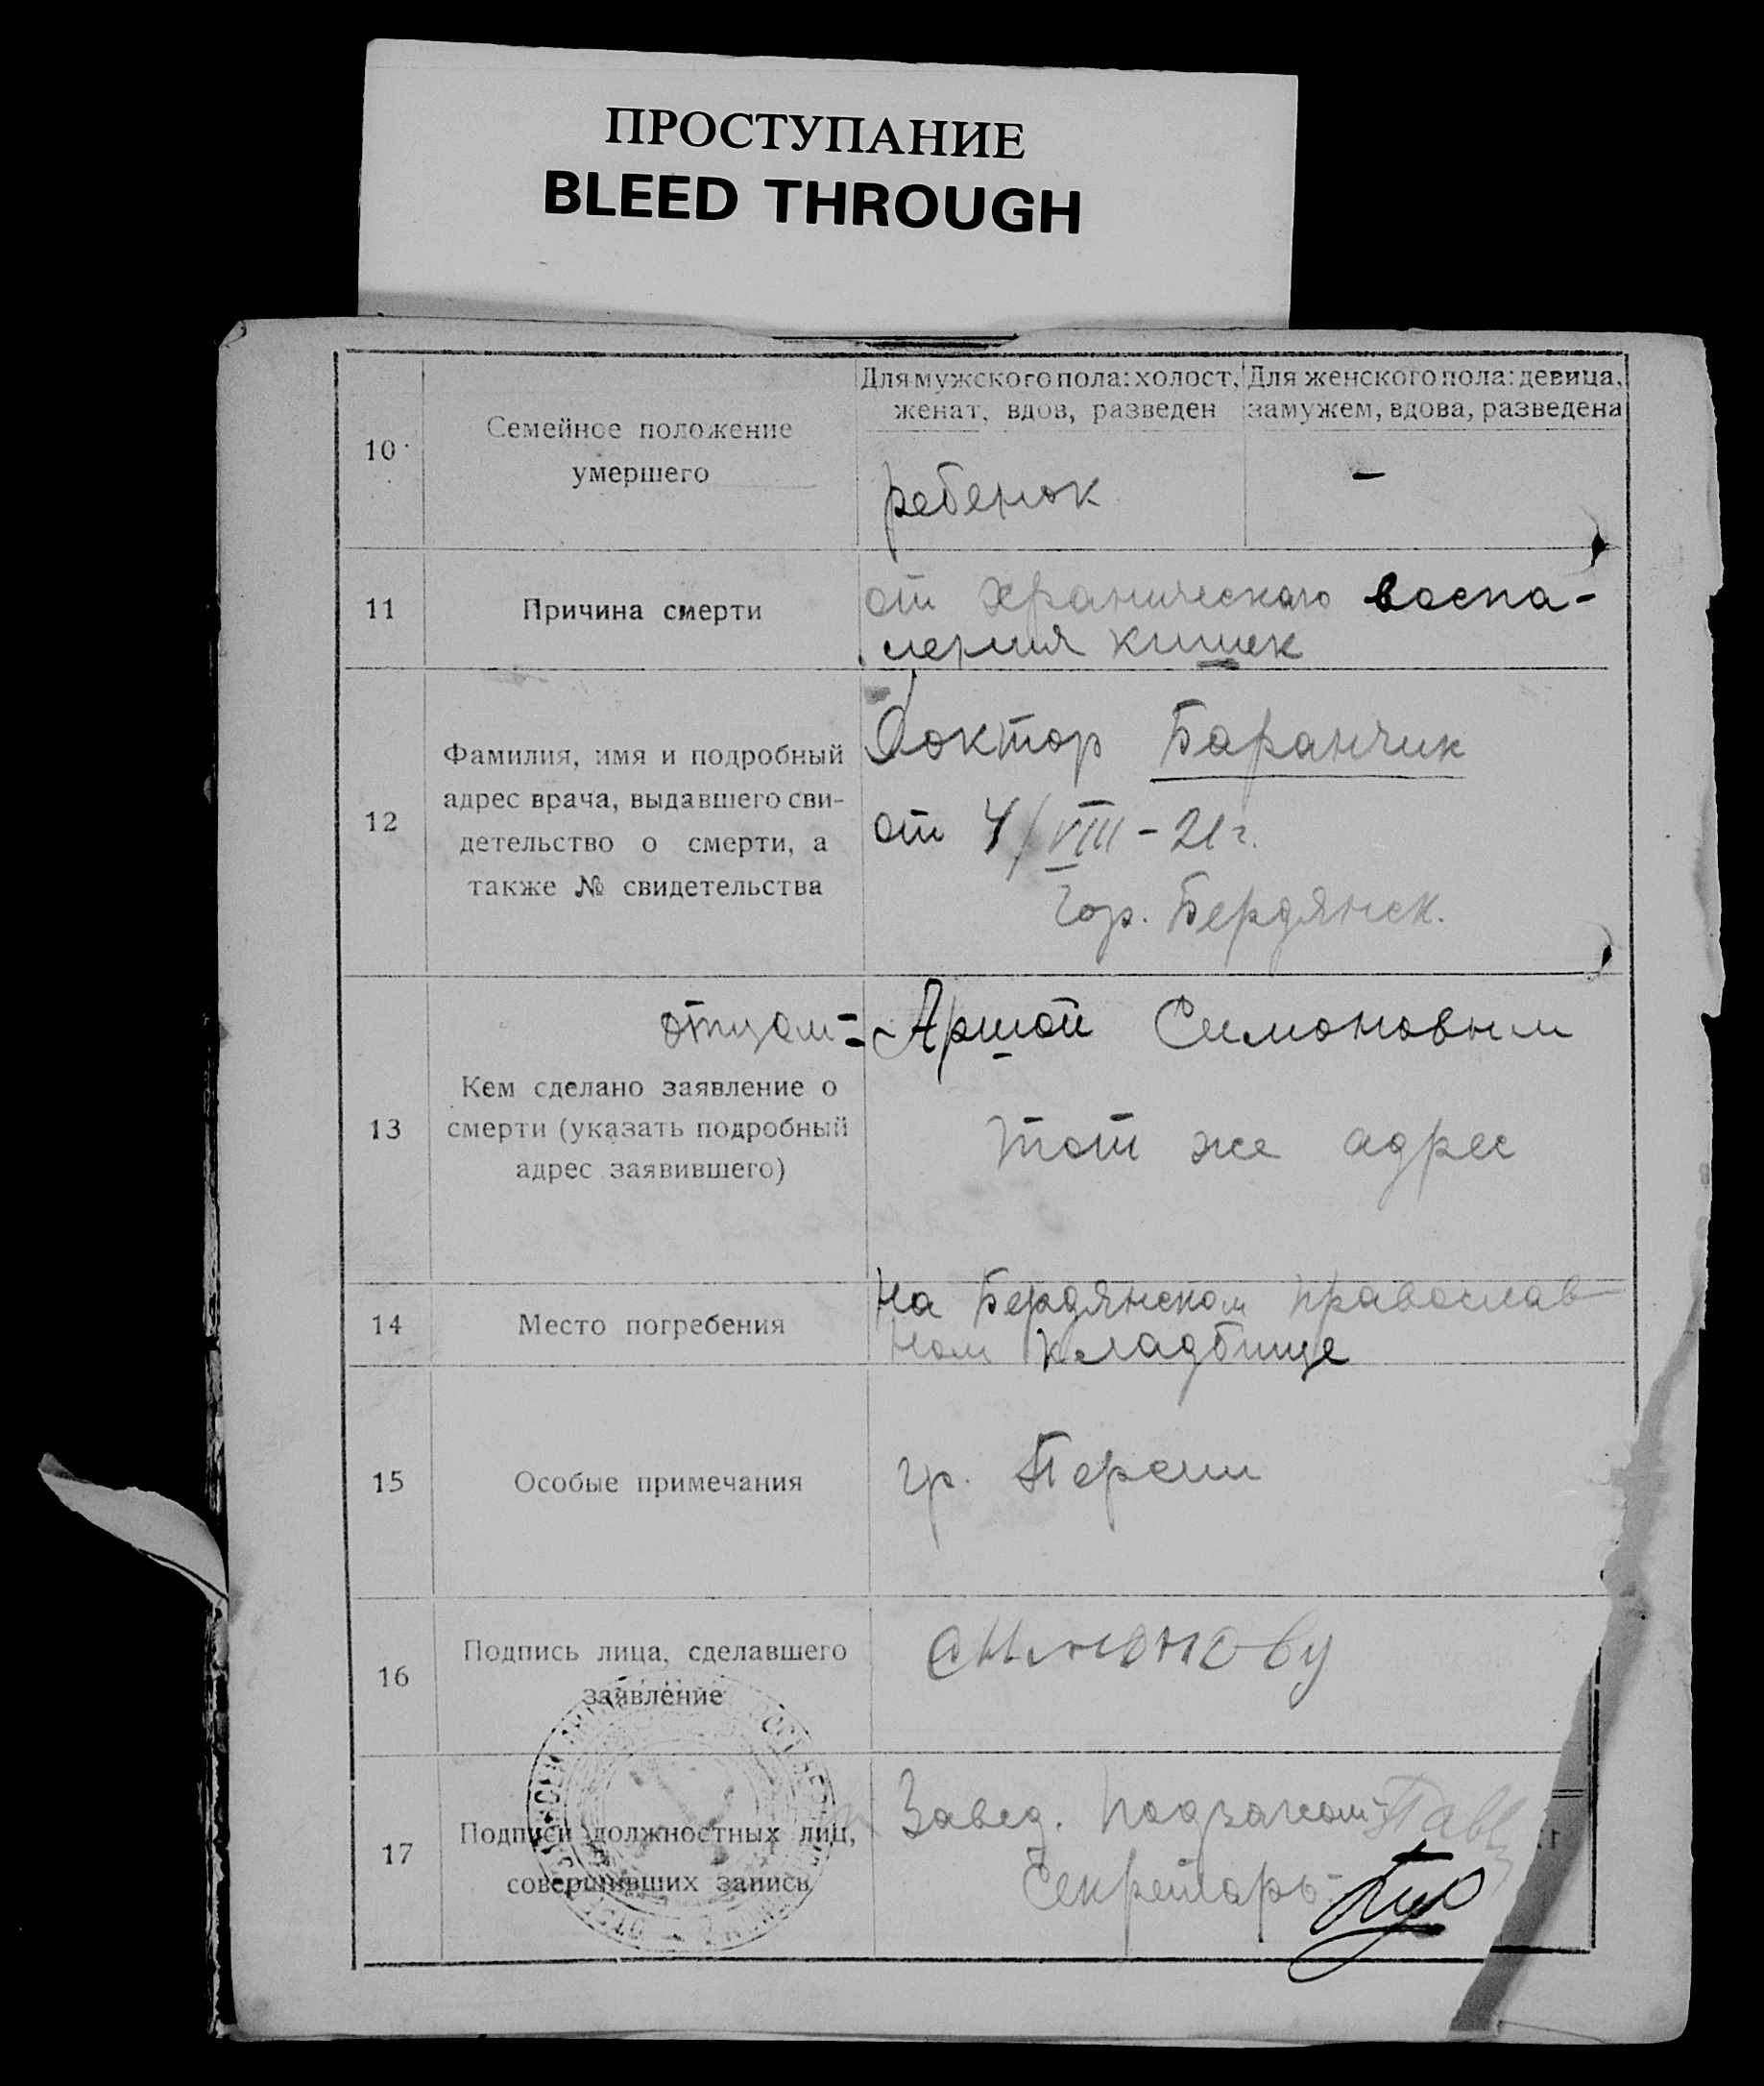 ПРОСТУПАНИЕ
BLEED THROUGH
Для мужского пола: холост, женат, вдов, разведен
Для женского пола: девица, замужем, вдова, разведена
10
Семейное положение
умершего
ребенок
-
11
Причина смерти
от хранического воспа-
ления кишек
12
Фамилия, имя и подробный
адрес врача, выдавшего сви-
детельство о смерти, а
также № свидетельства
Доктор Баранчик
от 4/VIII-21г.
гор. Бердянск.
13
отцом=
Кем сделано заявление о
смерти (указать подробный
адрес заявившего)
Аршой Симоновым
тот же адрес
14
Место погребения
на Бердянском православ
ном кладбище
15
Особые примечания
гр. Персии
16
Подпись лица, сделавшего
заявление
симонову
17
Подписи должностных лиц,
совершивших запись
Завед. Подзагсом-
Секретарь-